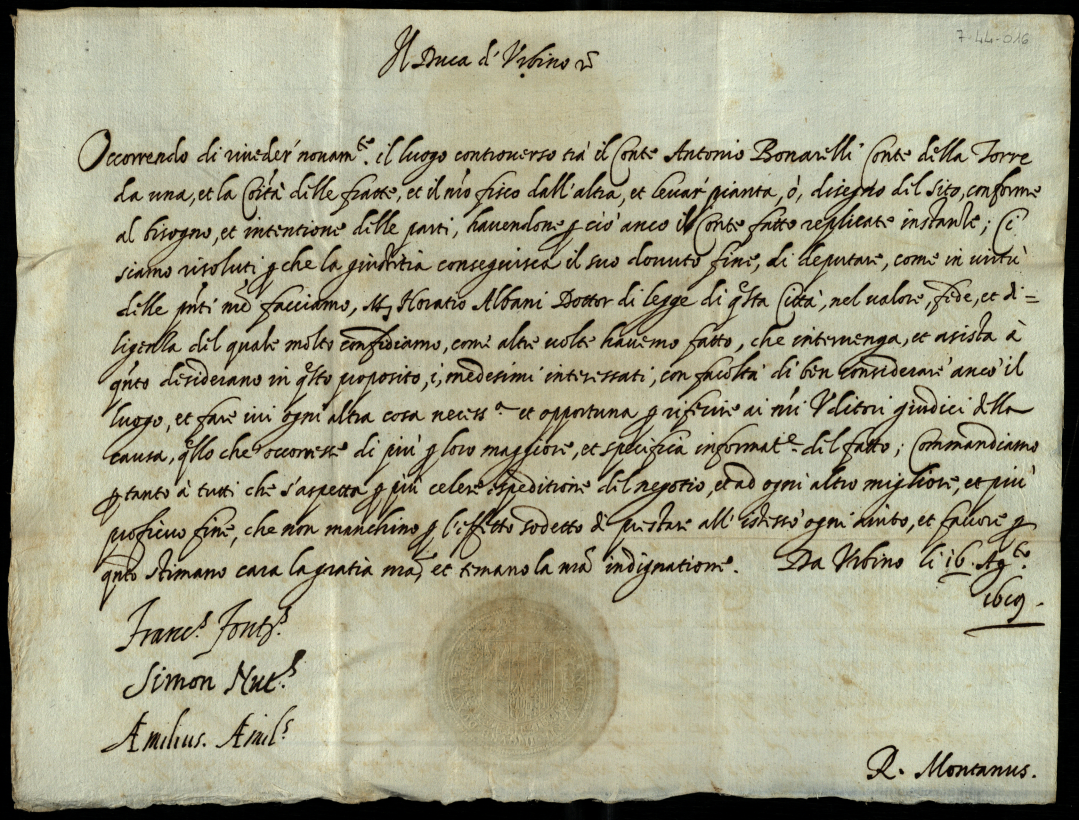 7-44-016
Il Duca d'Urbino
Occorrendo di riveder' novam.te il luogo controverso trà il Conte Antonio Bonarelli Conte della Torre
da una, et la Co͞ità delle fratte, et il n͞ro fisco dall'altra, et levar' pianta, ò, disegno del sito, conforme
al bisogno, et intentione delle parti, havendone ꝑ ciò anco il Conte fatto replicate instanze; Ci
siamo risoluti ꝑ che la giustitia conseguisca il suo dovuto fine, di deputare, come in virtù
delle p͞nti n͞re facciamo, Horatio Albani Dottor di legge di q͞sta Città, nel valore, fede, et di=
ligenza del quale molto confidiamo, come altre volte havemo fatto, che intervenga, et asista à
q͞nto desiderano in q͞sto proposito, i, medesimi interessati, con facoltà di ben considerare anco il
luogo, et fare ivi ogni altra cosa necess.a et opportuna ꝑ riferire ai n͞ri Uditori giudici della
causa, q͞llo che occorresse di più ꝑ loro maggiore, et specifica informat.e del fatto; Commandiamo
ꝑ tanto à tutti che s'aspetta ꝑ più celere espeditione del negotio, et ad ogni altro migliore, et più
proficuo fine, che non manchino ꝑ l'effetto sodetto di prestare all'istesso ogni aiuto, et favore ꝑ
q͞nto stimano cara la gratia n͞ra, et temano la n͞ra indignatione. Da Urbino li 16. Ag.to
1619.
Franc.s
Simon Nut.s
Æmilius. Æmil.s
R. Montanus.